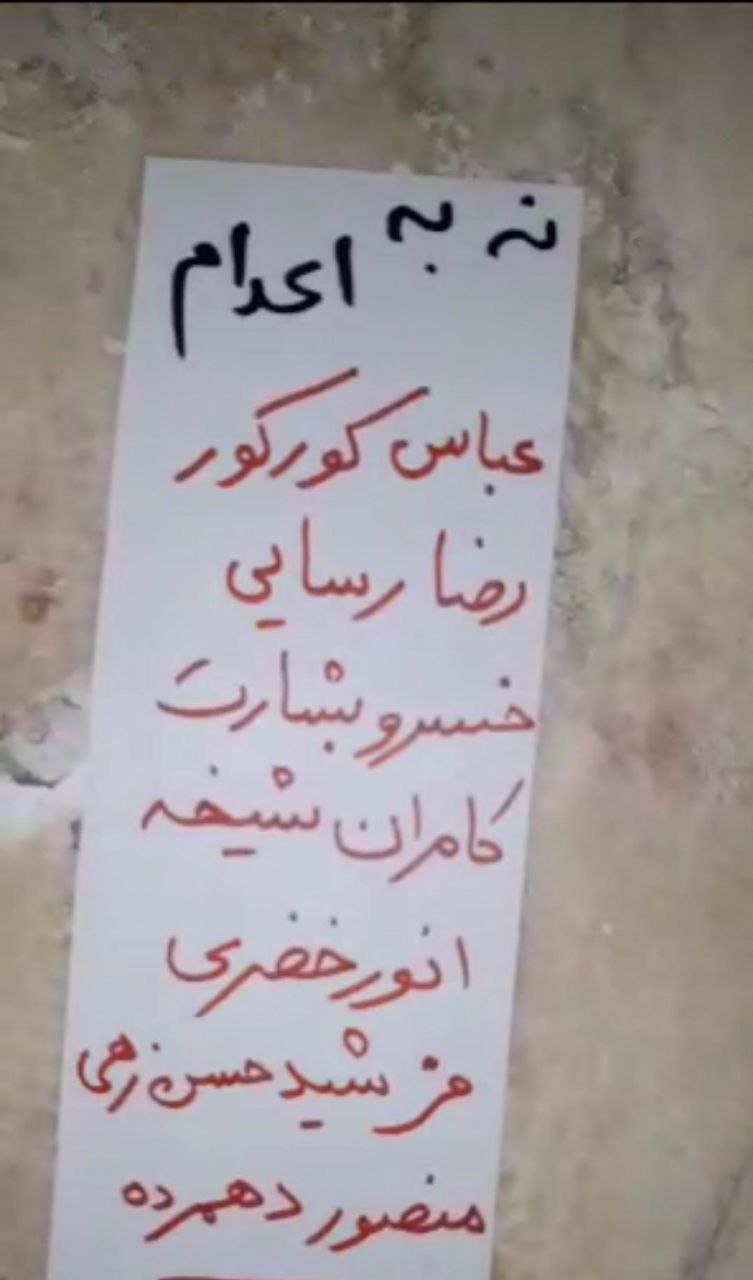 نه به اعدام
عباس کورکور
رضا رسایی
خسرو بشارت
کامران شیخه
انور خضری
فرشید حسن زهی
منصور دهمرده